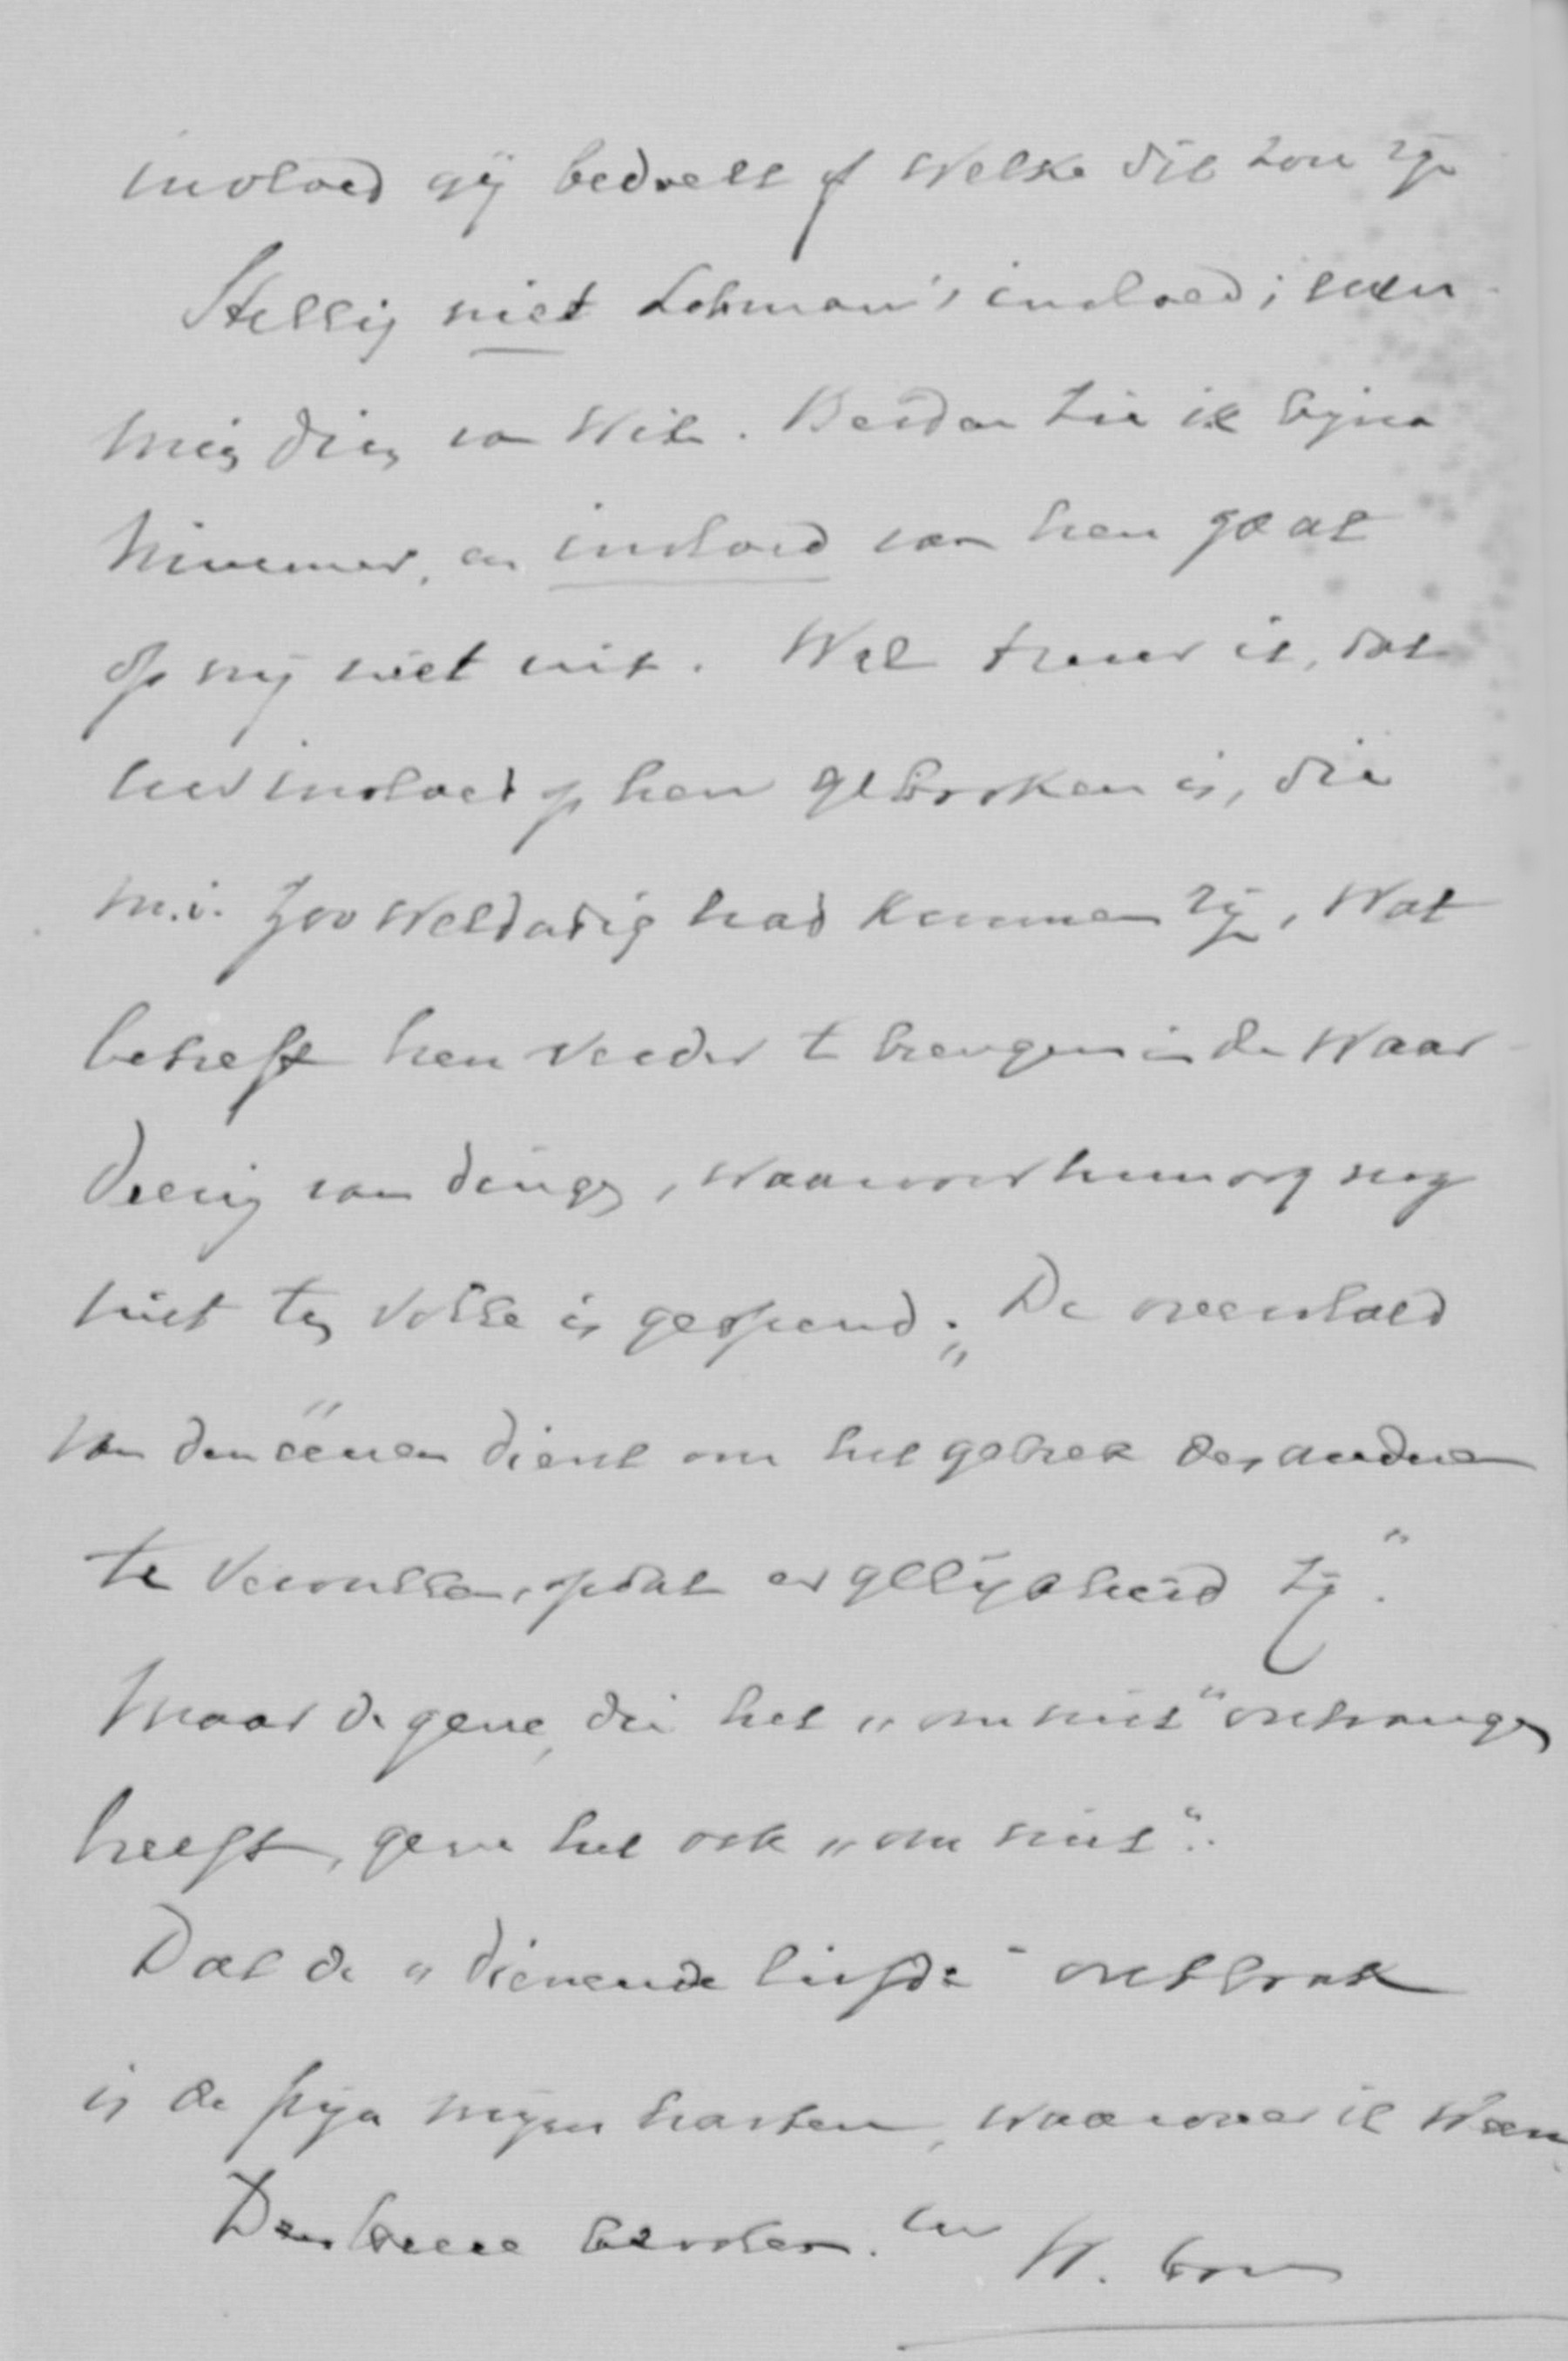 invloed gij bedoelt of welke dit zou zijn
Stellig niet Lohman's invloed; even
min die van With. Beiden zie ik bijna
nimmer, en invloed van hen gaat
op mij niet uit. Wel treur ik, dat
uw invloed op hen gebroken is, die
m.i. zoo weldadig had kunnen zijn, wat
betreft hen verder te brengen in de waar
deering van dingen, waarvoor hun oog nog
niet ten volle is geopend; "De overvloed
van den éénen dient om het gebrek des anderen
te vervullen, opdat er gelijkheid zij."
Maar de gene, die het "om niet" ontvangen
heeft, geve het ook "om niet".
Dat de "dienende liefde" ontbrak
is de pijn mijns harten, waarover ik ween
Den Heere bevolen. uw